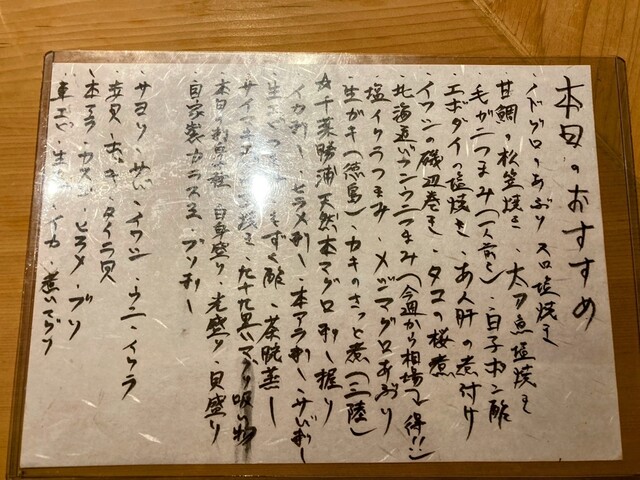 本日のおすすめ
・ノドグロのあぶり 又ハ塩焼き
甘鯛の松笠焼き ・太刀魚塩焼き
・毛がニつまみ(一人前より) ・白子ポン酢
・エボダイの塩焼き ・あん肝の煮付け
・イワシの磯辺巻き ・タコの桜煮
・北海道バフンウニつまみ(今週から相場で得!!)
塩イクラつまみ ・メジマグロあぶり
生ガキ(徳島)・カキのさっと煮(三陸)
☆千葉勝浦天然本マグロ刺し・握り
イカ刺し・ヒラメ刺し・本アラ刺し・サバ刺し
・もずく酢・茶碗蒸し
焼き・九十九里ハマグリ吸い物
本日 白身盛り・光盛り・貝盛り
自家製カラスミ・ブリ刺し
・サヨリ・サバ・イワシ・ウニ・イクラ
・赤貝・ホッキ・タイラ貝
・本マグロ ・ヒラメ・ブリ
・車エビ・生 ・イカ・煮ハマグリ